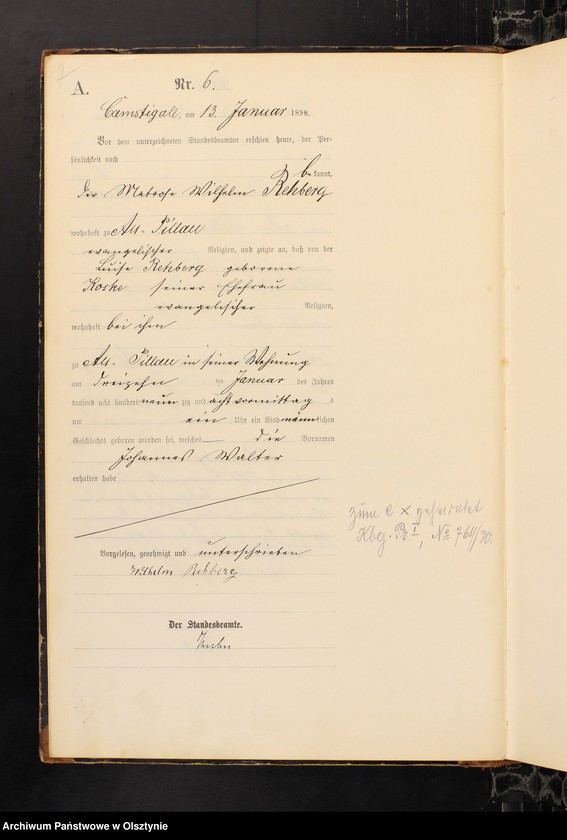 A.
Nr. 6.
Camstigall, am 13. Januar 1898.
Vor dem unterzeichneten Standesbeamten erschien heute, der Per-
sönlichkeit nach
bekannt,
der Matrose Wilhelm Rehberg
wohnhaft zu Alt-Pillau
evangelischer Religion, und zeigte an, daß von der
Luise Rehberg geborene
Koske seiner Ehefrau
evangelischer Religion,
wohnhaft bei ihm
zu Alt-Pillau in seiner Wohnung
am dreizehn ten Januar des Jahres
tausend acht hundert neunzig und acht vormittags
um ein Uhr ein Kind männlichen
Geschlechts geboren worden sei, welches die Vornamen
Johannes Walter
erhalten habe
zum 2 x geheiratet
Kbg. Pr. I, No 761/70.
Vorgelesen, genehmigt und unterschrieben
Wilhelm Rehberg
Der Standesbeamte.
Archiwum Państwowe w Olsztynie